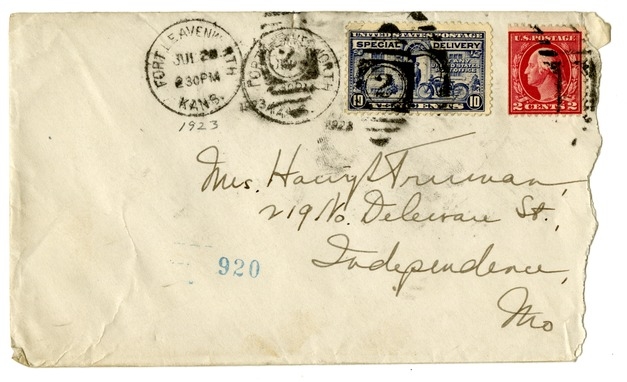 FORT LEAVENWORTH
JUL 20
230PM
KANS.
1923
FORT LEAVENWORTH
1923
1923
UNITED STATES POSTAGE
SPECIAL DELIVERY
10 TEN CENTS 10
U.S. POSTAGE
2 CENTS 2
Mrs. Harry S Truman,
219 No. Deleware St.,
Independence,
Mo
920